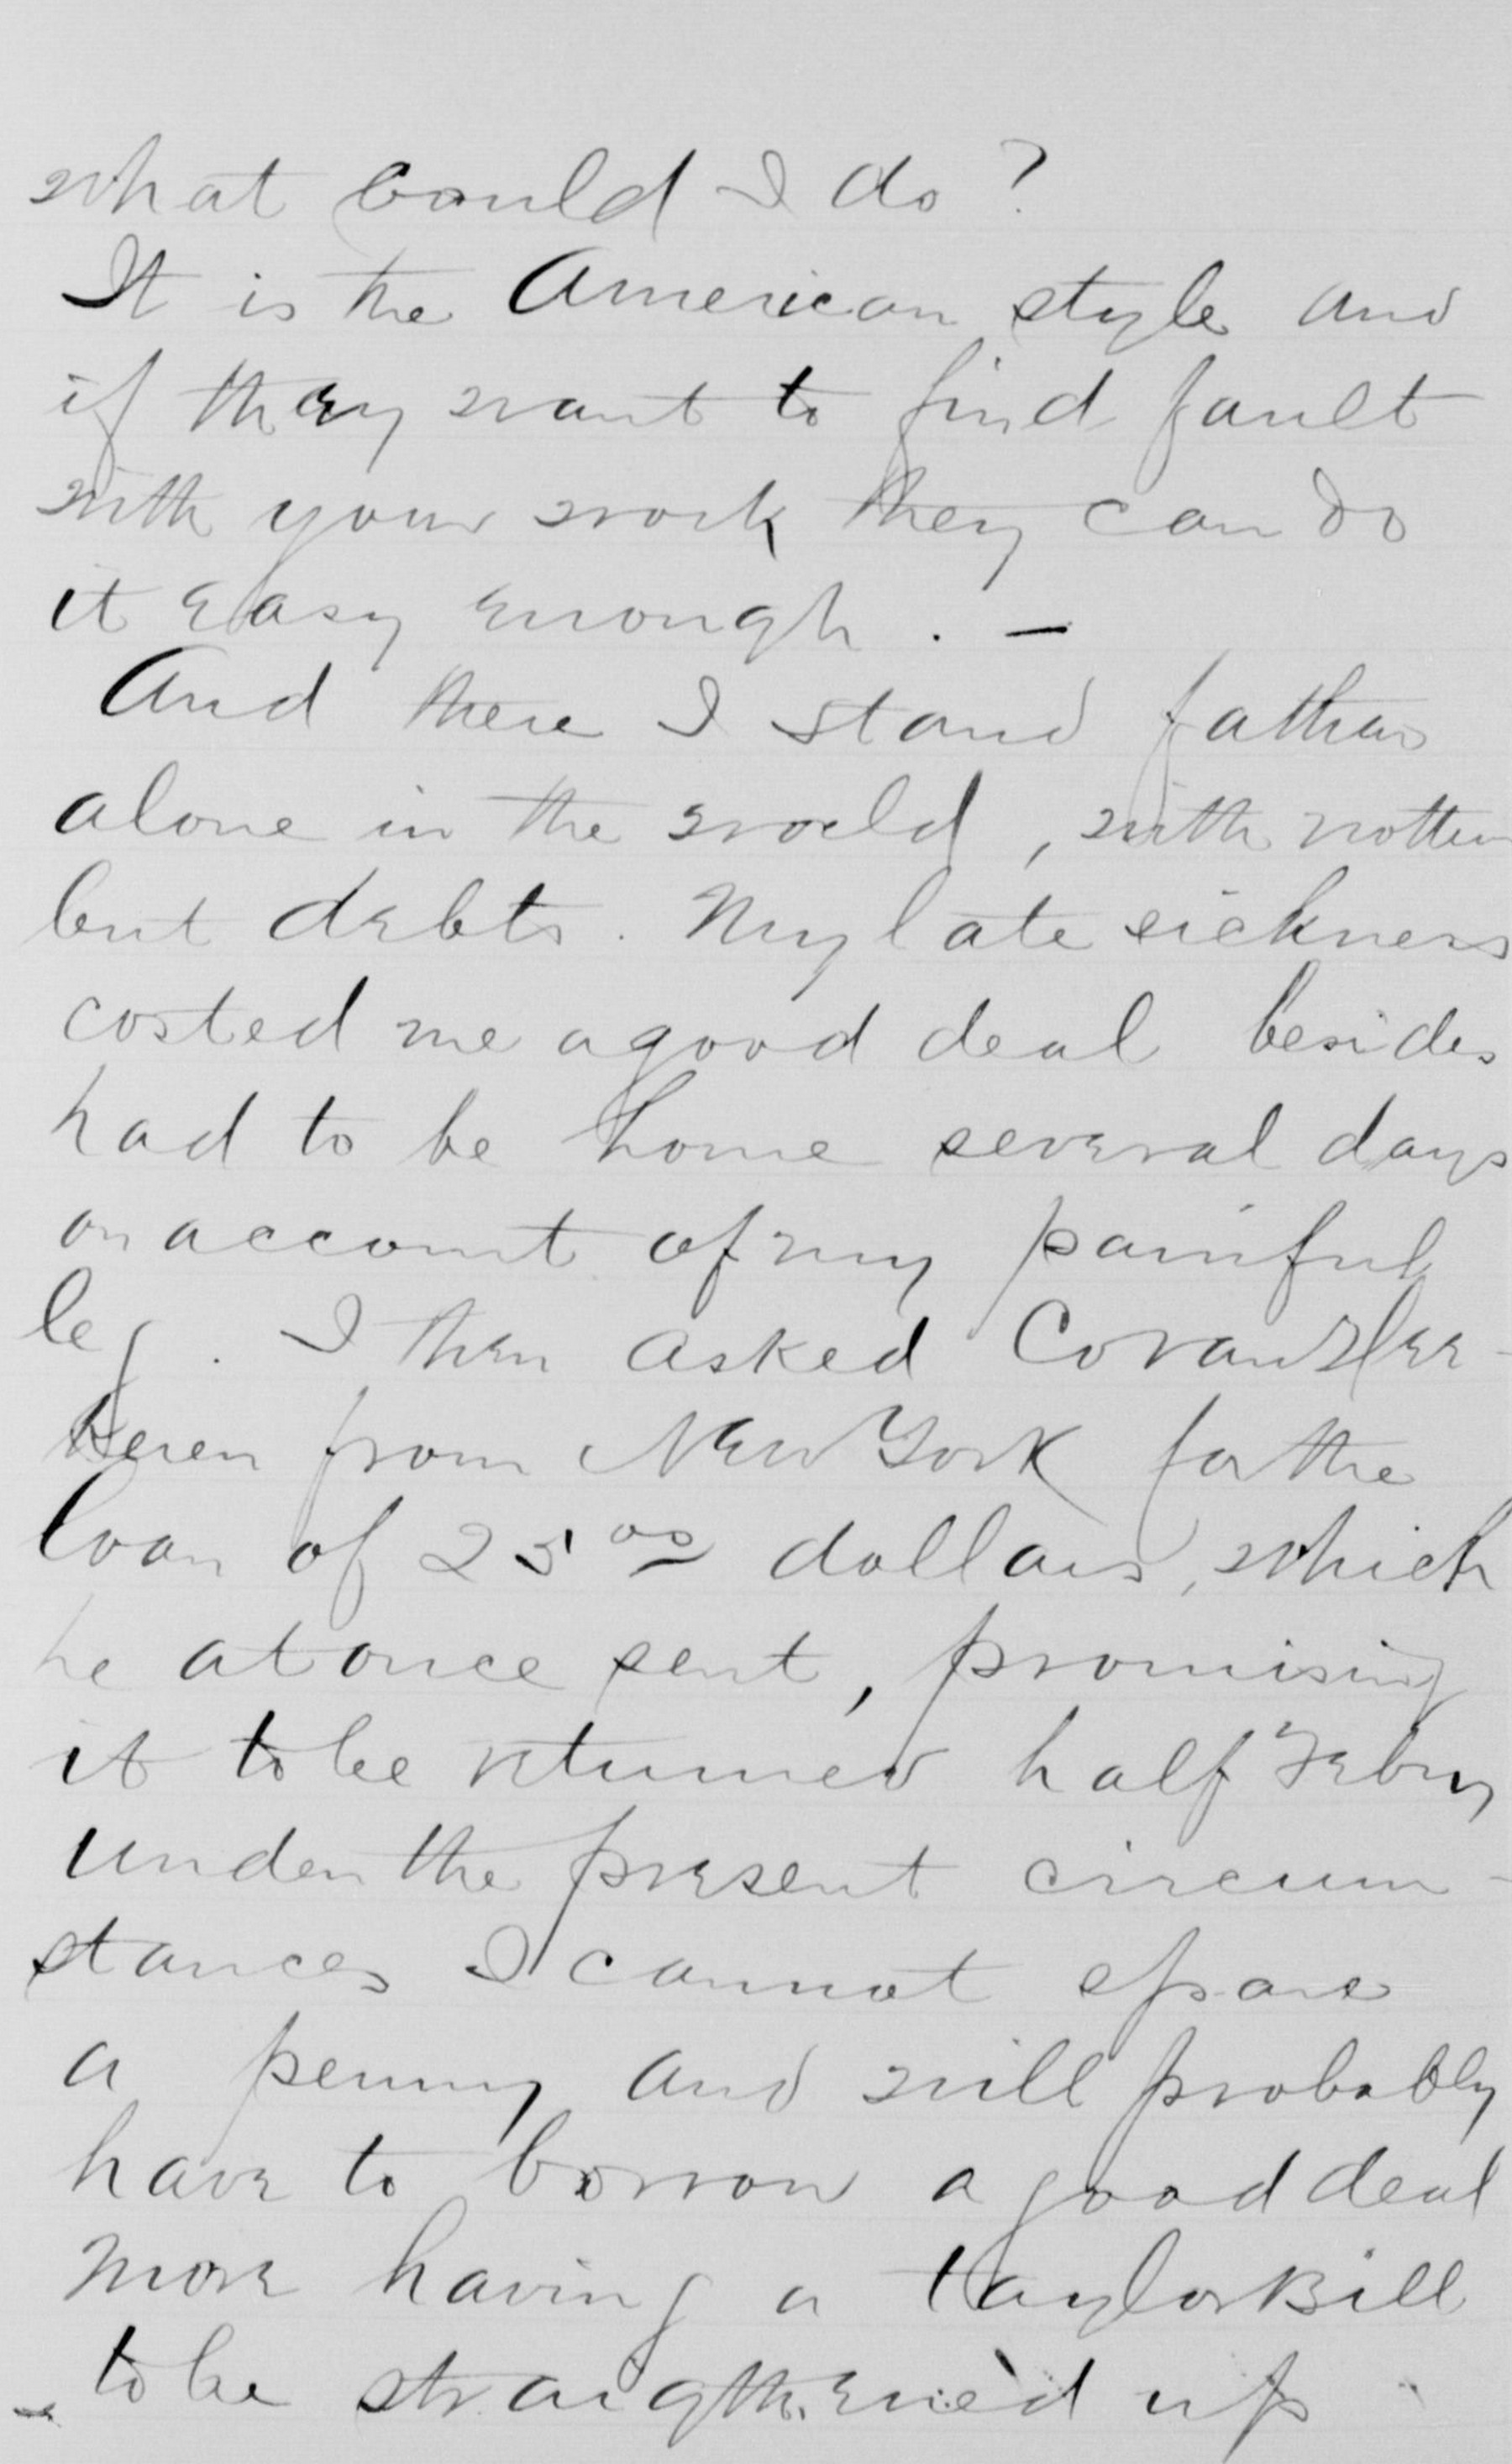 what could I do?
It is the American style and
if they want to find fault
with your work they can do
it easy enough. –
And there I stand father
alone in the world, with
but debts. My late sickness
costed me a good deal besides
had to be home several days
on account of my painful
leg. I then asked
from New York for the
loan of 25 00 dollars, which
he at once sent, promising
it to be returned half Febry
under the present circum-
stances I cannot spare
a penny and will probably
have to borrow a good deal
more having a taylor Bill
to be straigthened up